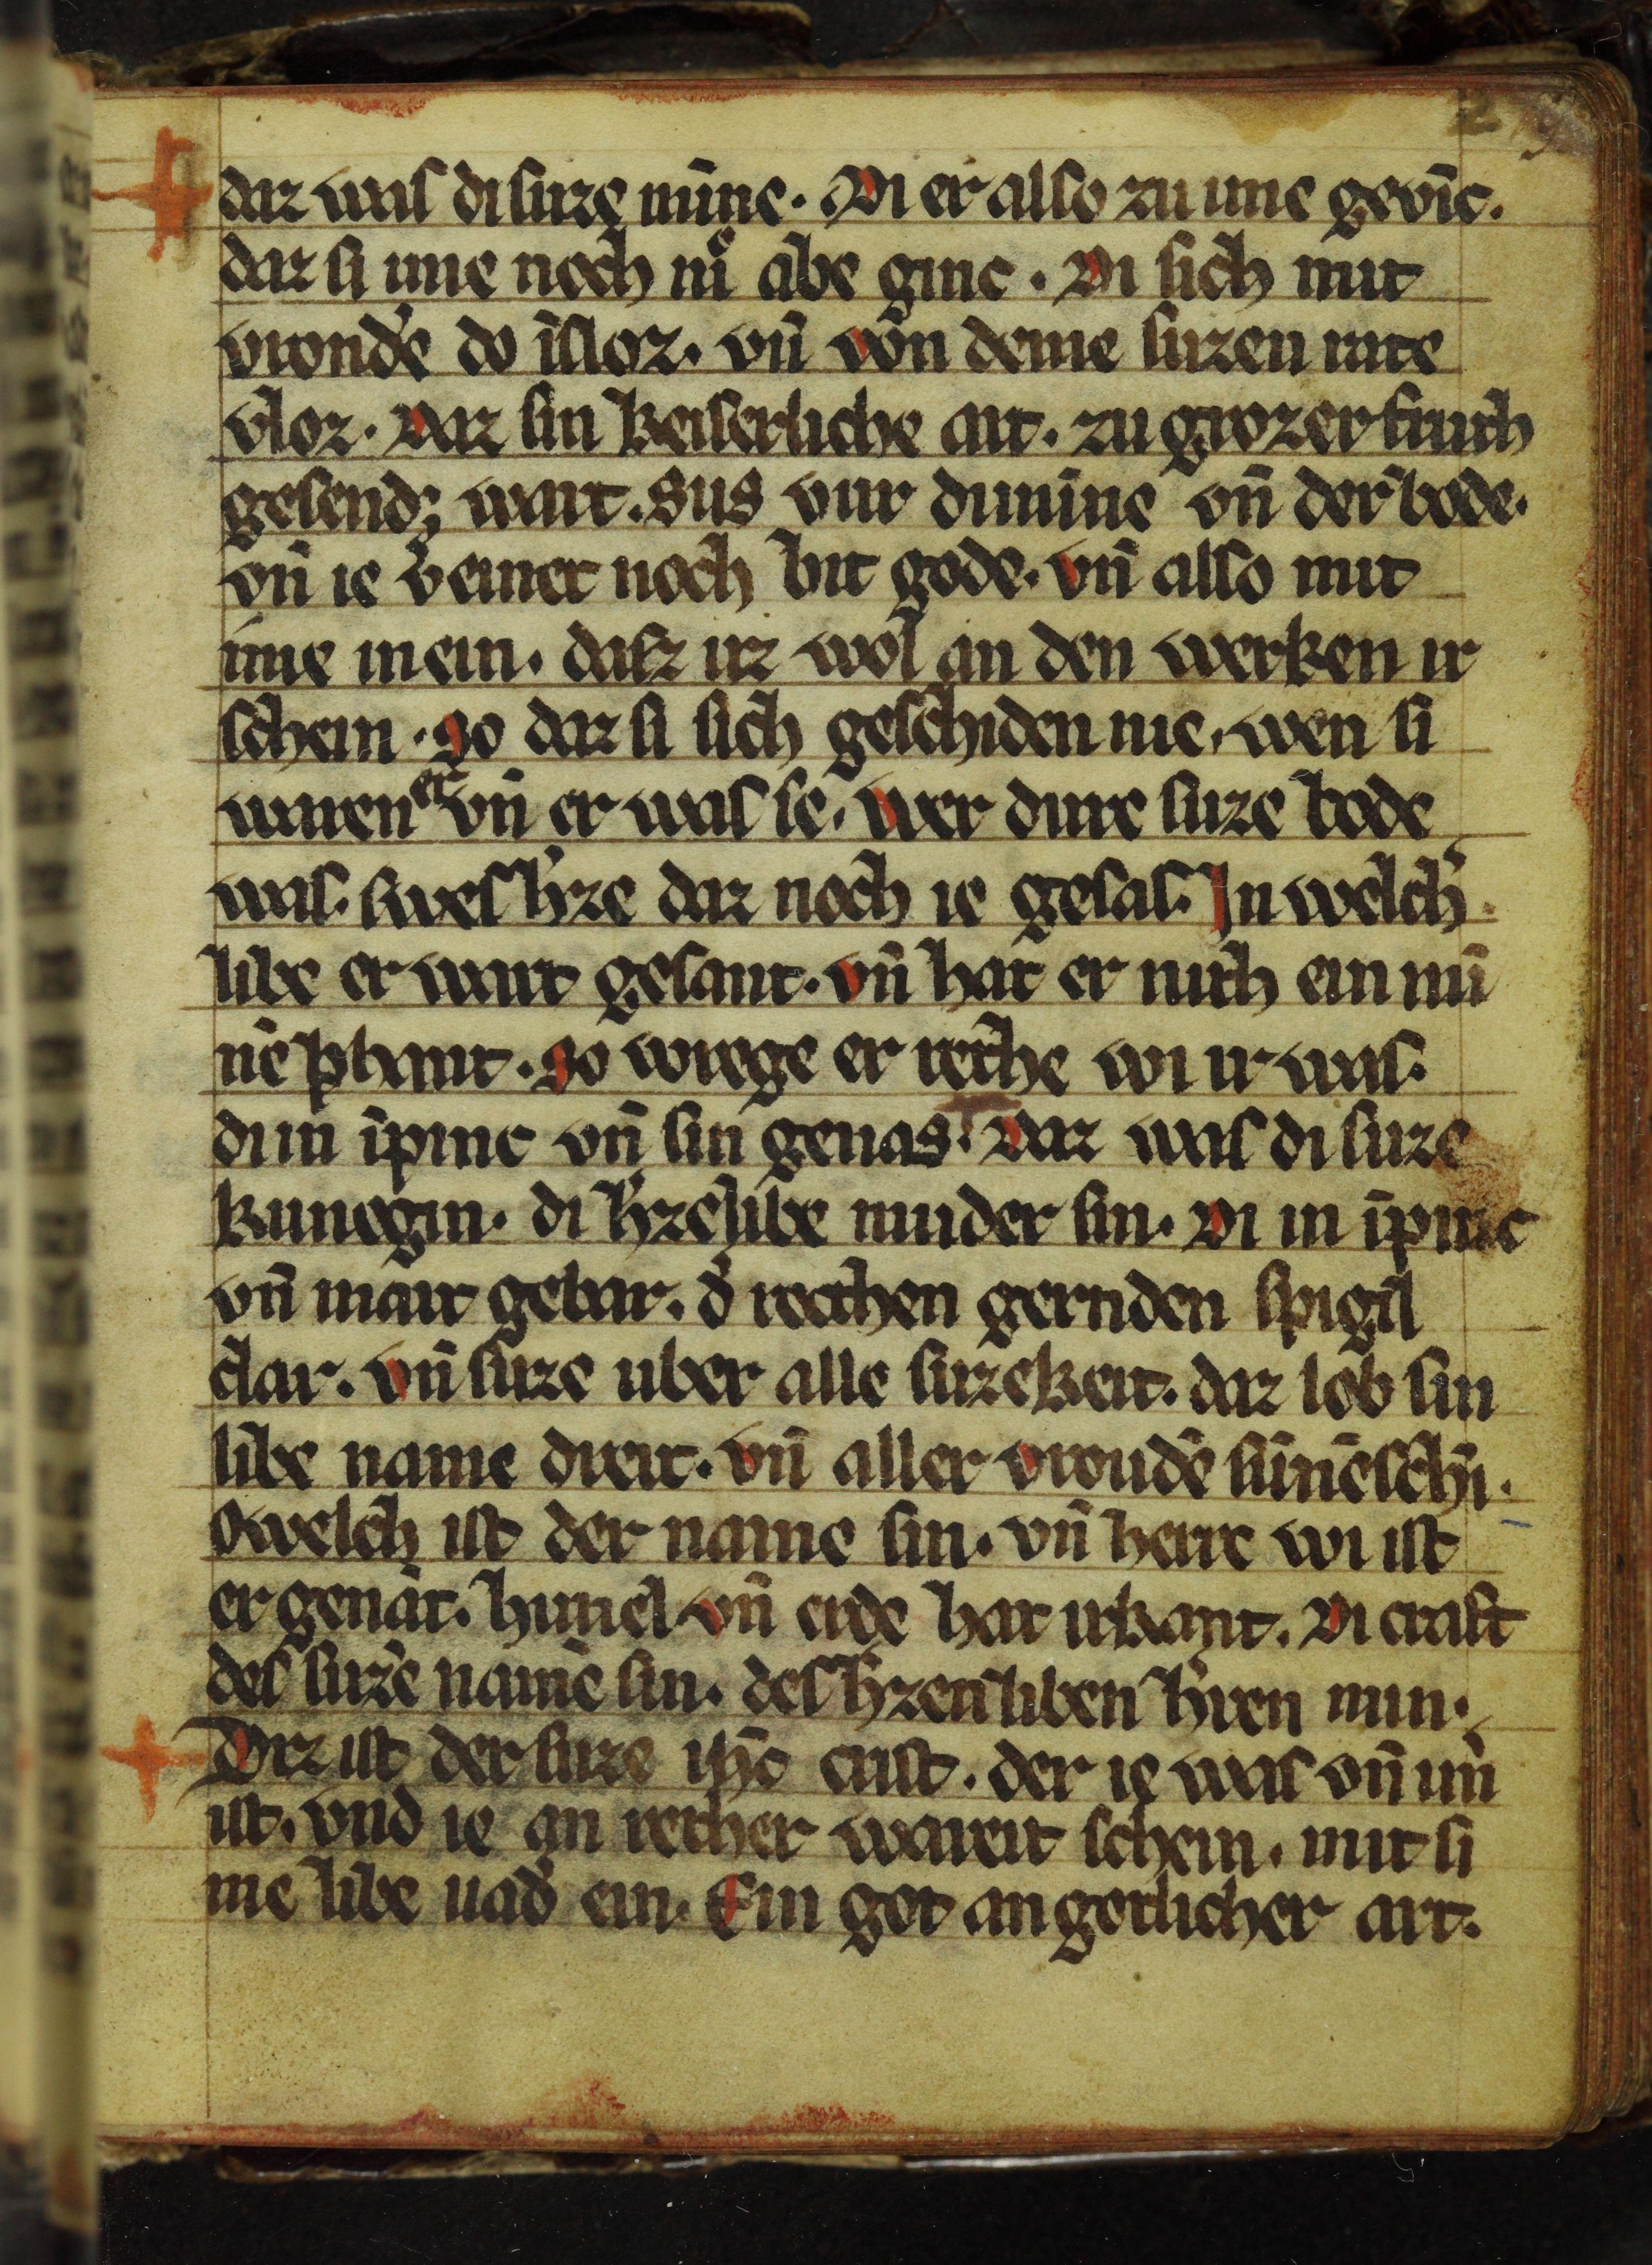 daz was di suze mīne. Di er also zu ime gevīc.
daz si ime noch niͤ abe ginc. Di sich mit
vrondē do īsloz. vn̄ von deme suzen rate
vloz. Daz sin keiserliche art. zu grozer sruch
gesendꝫ wart. sus vur dīmīne vn̄ der bode.
vn̄ ie v̄einet noch bit gode. vn̄ also mit
ime in ein. dasz irz wol an den werken ir
schein. So daz si sich geschiden nie. wen si
waren er vn̄ er was se. wer dirre suze bode
was. swes h̄ze daz noch ie gesas. In welch̄
libe er wart gesant. vn̄ hat er nith ein mī
nē phant. So wrege er rethe wi ir was.
di in īpinc vn̄ sin genas. Daz was di suze
kunegin. di h̄zelibe muder sin. Di in īpinc
vn̄ mait gebar. d̄ recthen gernden spigil
clar. vn̄ suze uber alle suzekeit. daz lob sin
libe name dreit. vn̄ aller vroudē sūnēschī.
Swelch ist der name sin. vn̄ herre wi ist
er genāt. himel vn̄ erde hat irkant. Di craft
des suzē namē sin. des h̄zen liben h̄ren min.
Diz ist der suze ihc̄ crist. der ie was vn̄ im̄
ist. vnd ie an rether wareit schein. mit si
me libe uad̄ ein. Ein got an gotlicher art.